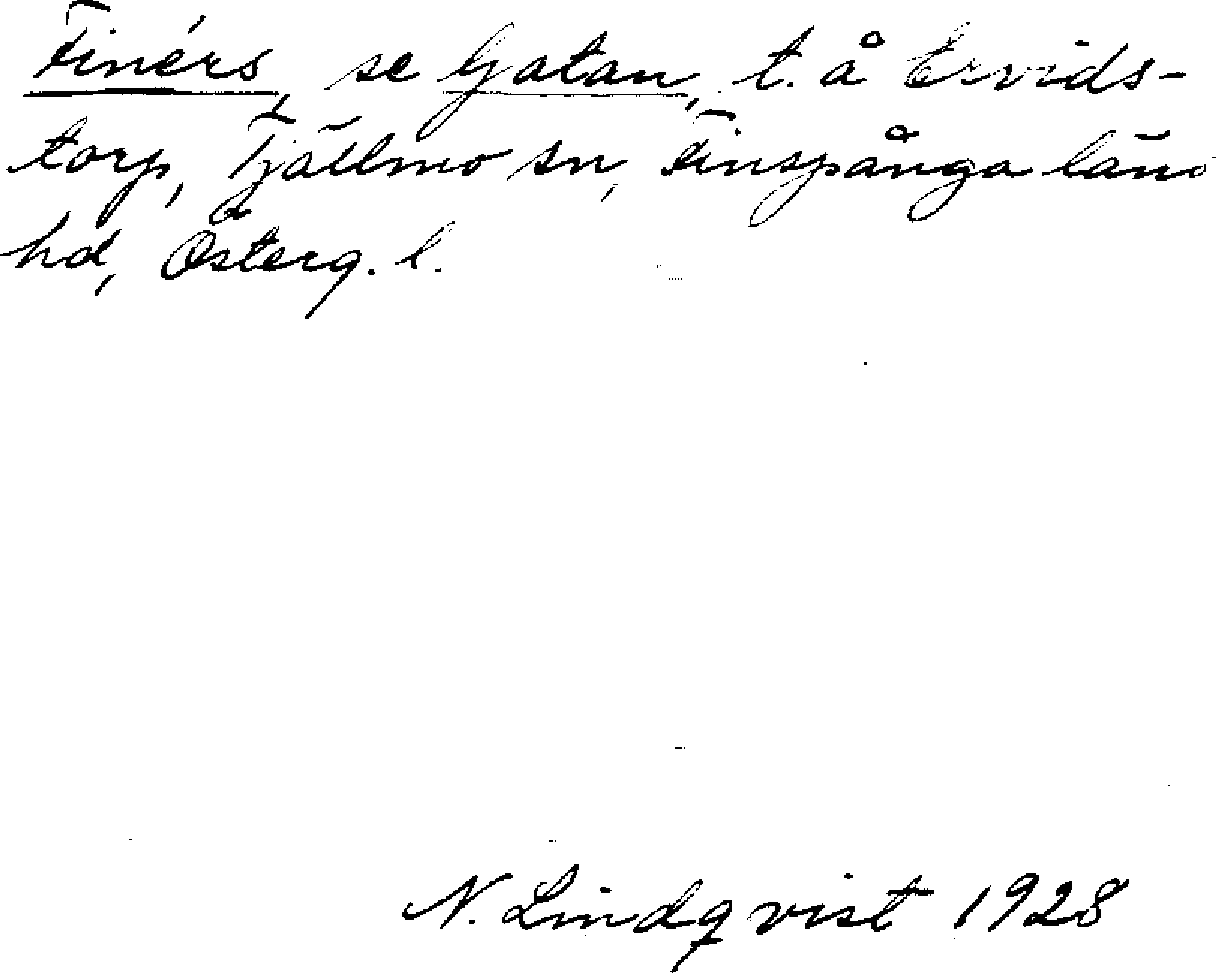 Finérs, se Gatan, t. å Ervids-
torp, Tjällmo sn, Finspånga läns
hd, Österg. l.
N. Lindqvist 1928